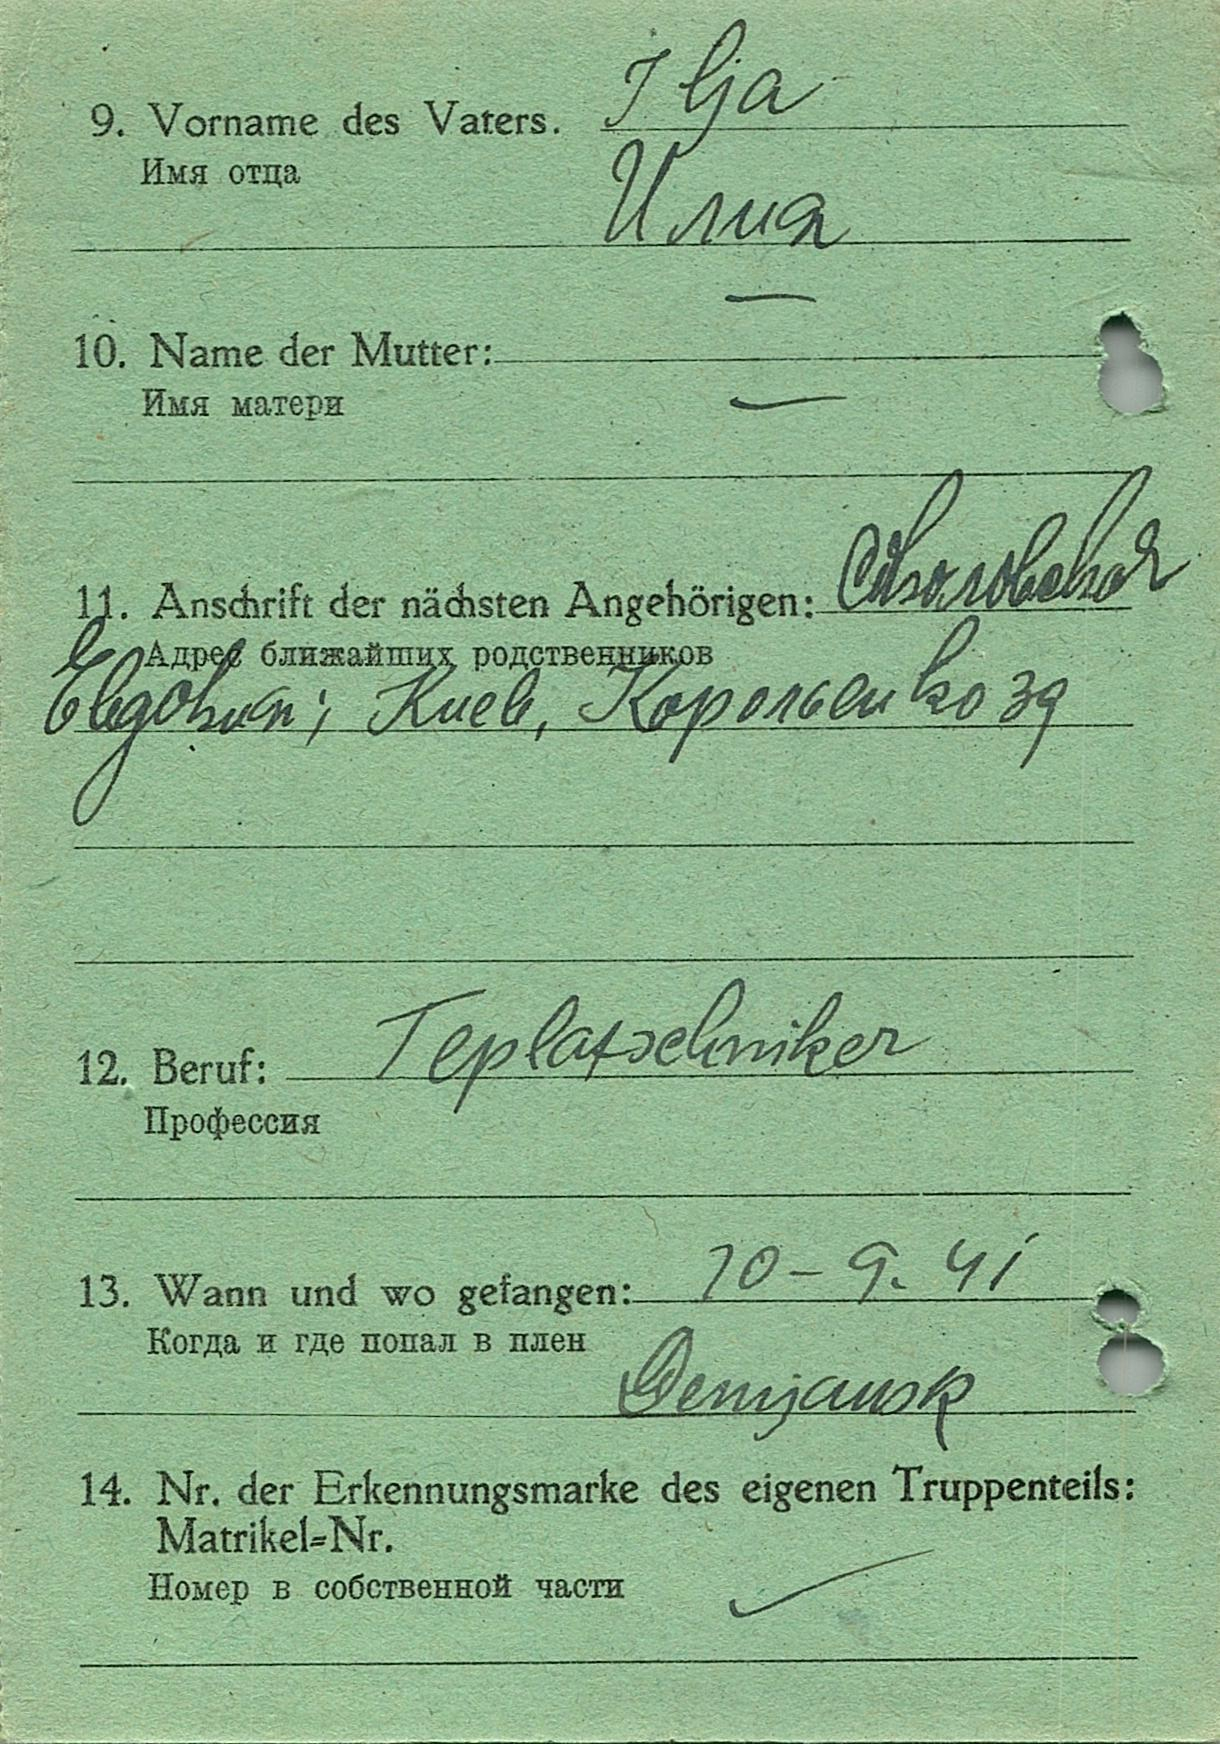 9. Vorname des Vaters. Ilja
Имя отца
Илия
10. Name der Mutter: —
Имя матери —
11. Anschrift der nächsten Angehörigen:
Адрес ближайших родственников
Киев, 39
12. Beruf: Teplatechniker
Профессия
13. Wann und wo gefangen: 10-9.41
Когда и где попал в плен
Demjansk
14. Nr. der Erkennungsmarke des eigenen Truppenteils:
Matrikel=Nr.
Номер в собственной части